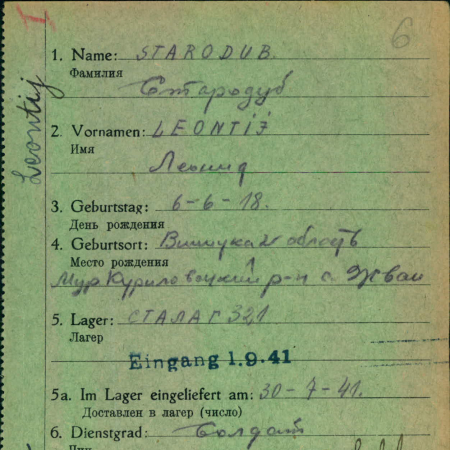 6
Leontij
1. Name: STARODUB.
Фамилия
Стародуб
2. Vornamen: LEONTIJ
Имя
Леонид
3. Geburtstag: 6-6-18.
День рождения
4. Geburtsort: область
Место рождения
Мур Куриловоцкий р-н с.
5. Lager: СТАЛАГ 321
Лагер
Eingang 1.9.41
5a. Im Lager eingeliefert am: 30-7-41.
Доставлен в лагер (число)
6. Dienstgrad: Солдат